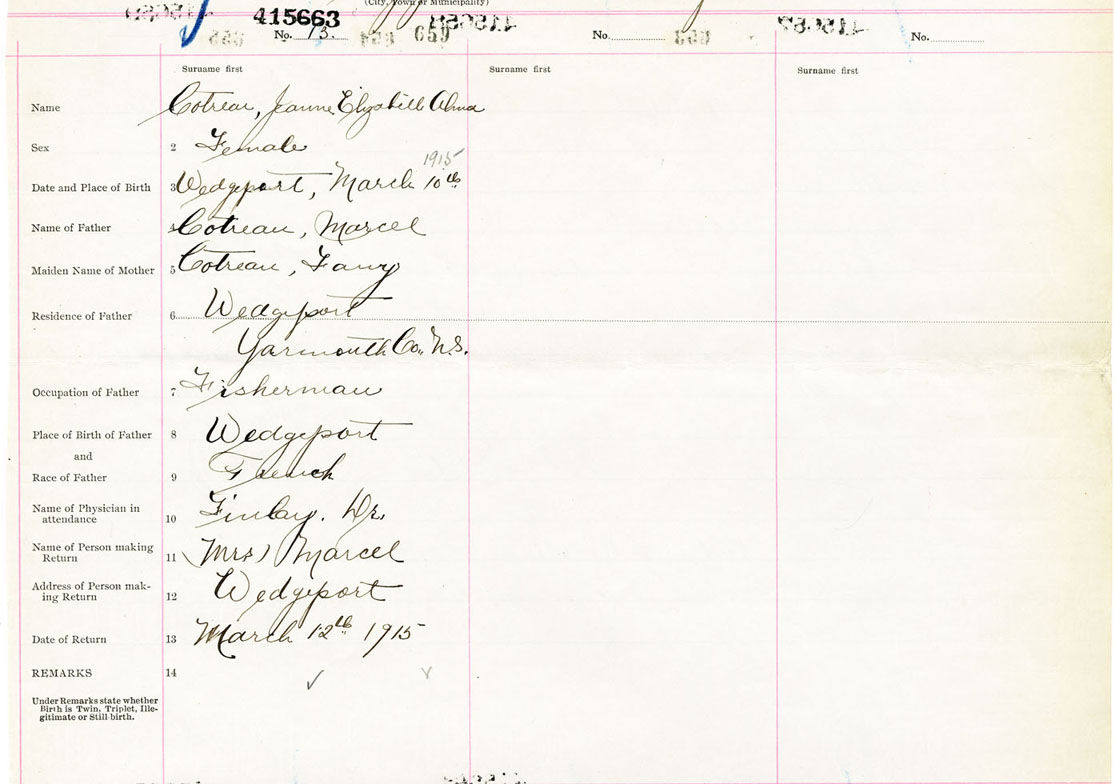 (City, Town or Municipality)
415663
No. 13.
No.
No.
Surname first
Surname first
Surname first
Name Cotreau, Jeanne Elizabeth Alma
Sex 2 Female
1915
Date and Place of Birth 3 Wedgeport, March 10th
Name of Father 4 Cotreau, Marcel
Maiden Name of Mother 5 Cotreau, Fanny
Residence of Father 6 Wedgeport
Yarmouth Co. N.S.
Occupation of Father 7 Fisherman
Place of Birth of Father 8 Wedgeport
and
Race of Father 9 French
Name of Physician in
attendance 10 Finlay. Dr.
Name of Person making
Return 11 (Mrs) Marcel
Address of Person mak-
ing Return 12 Wedgeport
Date of Return 13 March 12th 1915
REMARKS 14
Under Remarks state whether
Birth is Twin, Triplet, Ille-
gitimate or Still-birth.